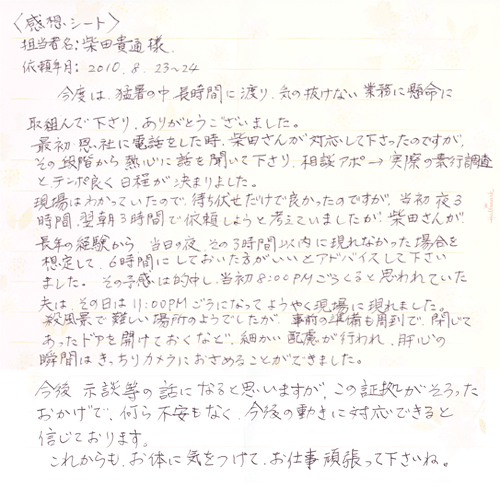 〈感想シート〉
担当者名：柴田貴通様
依頼年月：2010.8.23〜24
今度は、猛暑の中 長時間に渡り、気の抜けない業務に懸命に
取組んで下さり、ありがとうございました。
最初、思い社に電話をした時、柴田さんが対応して下さったのですが、
その段階から熱心に話を聞いて下さり、相談アポ→実際の素行調査
とテンポ良く日程が決まりました。
現場はわかっていたので、待ち伏せだけで良かったのですが、当初 夜3
時間、翌朝3時間で依頼しようと考えていましたが、柴田さんが
長年の経験から、当日の夜、その3時間以内に現れなかった場合を
想定して、6時間にしておいた方がいいとアドバイスして下さい
ました。その予感は的中し、当初8:00PMごろくると思われていた
夫は、その日は11:00PMごろになってようやく現場に現れました。
殺風景で難しい場所のようでしたが、事前の準備も周到で、閉じて
あったドアを開けておくなど、細かい配慮が行われ、肝心の
瞬間はきっちりカメラにおさめることができました。
今後 示談等の話になると思いますが、この証拠がそろった
おかげで、何ら不安もなく、今後の動きに対応できると
信じております。
これからも、お体に気をつけて、お仕事頑張って下さいね。